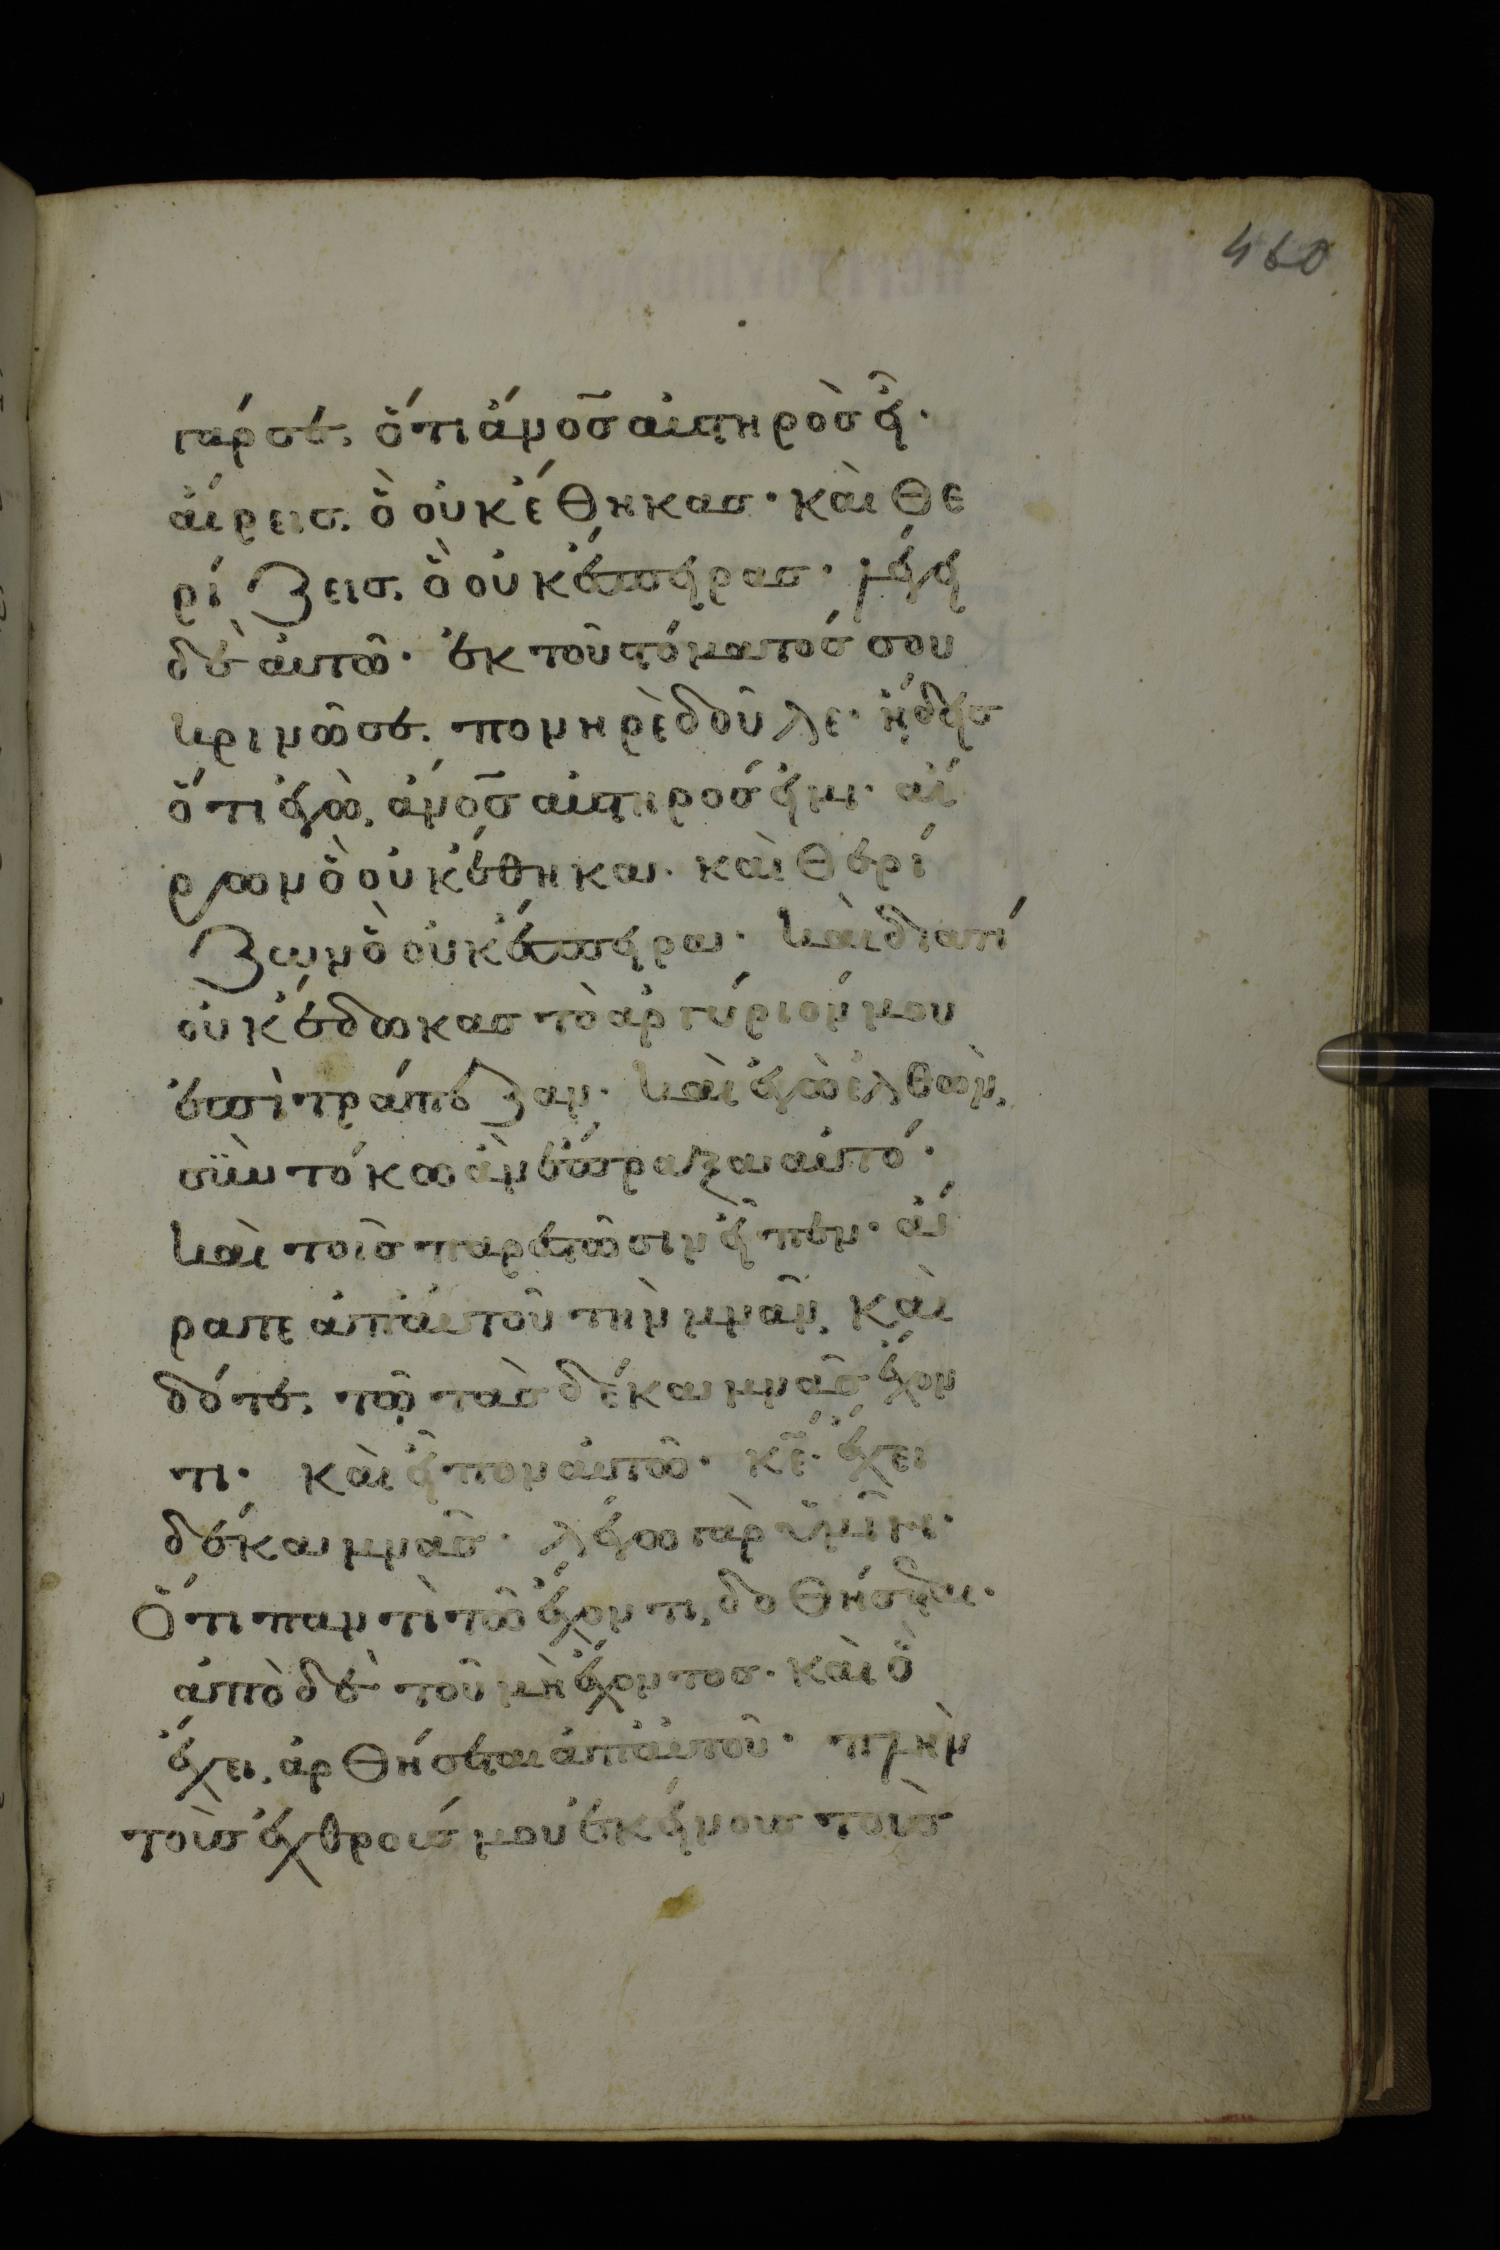 460
γάρ σε. ὅτι ἄνο̅σ αυστηρὸσ εἶ·
αἴρεισ. ὃ οὐκ ἔθηκασ· καὶ θε
ρίζεισ. ὃ οὐκ ἔσπειρασ· λέγει
δὲ αὐτῶ· ἐκ τοῦ στόματόσ σου
κρινῶ σε. πονηρὲ δοῦλε· ἤ̣δεισ
ὅτι ἐγὼ, ἄνο̅σ αυστηροσ εἰμι· αἴ
ρων ὃ οὐκ ἔθηκα· καὶ θερί
ζων ὃ οὐκ ἔσπειρα· καὶ διατί
οὐκ ἔδωκασ τὸ ἀργύριόν μου
ἐπὶ τράπεζαν· καὶ ἐγὼ ἐλθὼν,
σὺν τόκω ἂν ἔπραξα αὐτό·
καὶ τοῖσ παρεστῶσιν εἶπεν· ἄ
ρατε ἀπ' αὐτοῦ τὴν μνᾶν, καὶ
δότε, τῷ τὰσ δέκα μνᾶσ ἔχον
τι· καὶ εἶπον αὐτῶ· κ̅ε̅· ἔχει
δέκα μνᾶσ· λέγω γὰρ ὑμῖν·
Ὅτι παντὶ τῶ ἔχοντι, δοθήσεται·
ἀπὸ δὲ τοῦ μὴ ἔχοντοσ· καὶ ὃ
ἔχει, ἀρθήσεται ἀπ' αὐτοῦ· πλὴν
τοὺσ ἐχθρούσ μου ἐκείνουσ τοὺσ